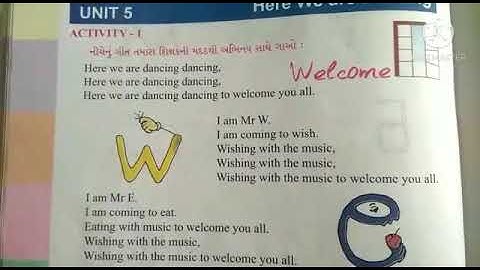 UNIT 5
Here We are
ACTIVITY - 1
નીચેનું ગીત તમારા શિક્ષકની મદદથી અભિનય સાથે ગાઓ :
Here we are dancing dancing,
Here we are dancing dancing,
Here we are dancing dancing to welcome you all.
Welcome
W
I am Mr W.
I am coming to wish.
Wishing with the music,
Wishing with the music,
Wishing with the music to welcome you all.
I am Mr E.
I am coming to eat.
Eating with music to welcome you all.
Wishing with the music,
Wishing with the music to welcome you all.
e